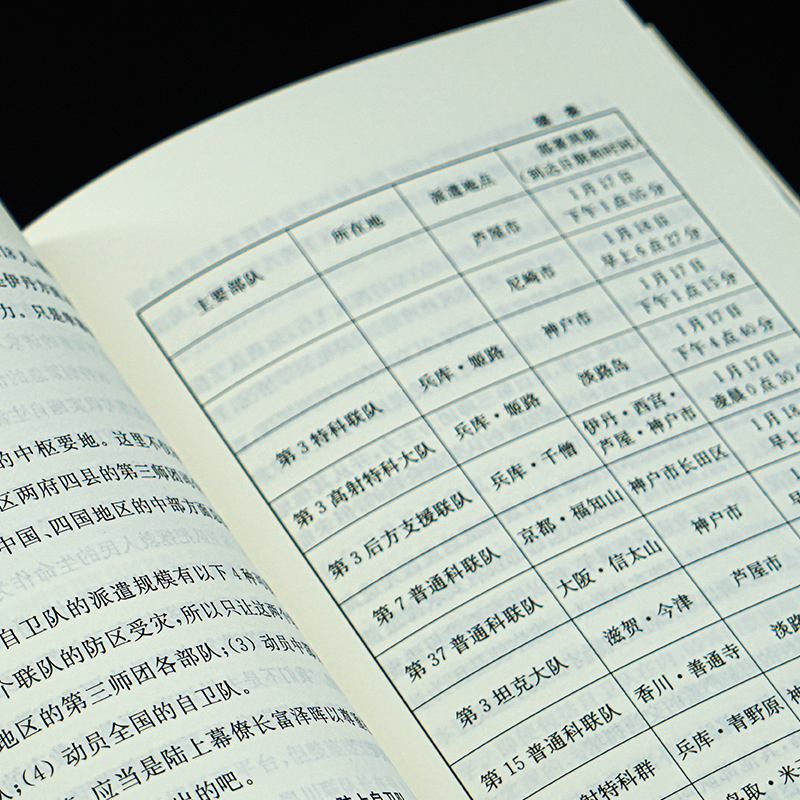 力。只是
的中枢要地。这里不
区两府四县的第三师团
中国、四国地区的中部方面
自卫队的派遣规模有以下4种
个联队的防区受灾,所以只让这两
地区的第三师团各部队;(3) 动员中
队;(4) 动员全国的自卫队。
应当是陆上幕僚长富泽晖以
出的吧。
陆上自卫
续 表
主要部队 所在地 派遣地点
(到达日期和时间)
芦屋市 1月17日
下午1点05分
尼崎市 1月18日
早上6点27分
神户市 1月17日
下午1点15分
第3特科联队 兵库·姬路 淡路岛 1月17日
下午4点40分
第3高射特科大队 兵库·姬路 伊丹·西宫· 1月17日
芦屋·神户市 凌晨0点30
第3后方支援联队 兵库·千僧 神户市长田区 1月18
早上
第7普通科联队 京都·福知山 神户市
第37普通科联队 大阪·信太山 芦屋市
第3坦克大队 滋贺·今津 淡路
第15普通科联队 香川·善通寺 神
射特科群 兵库·青野原
鸟取·米